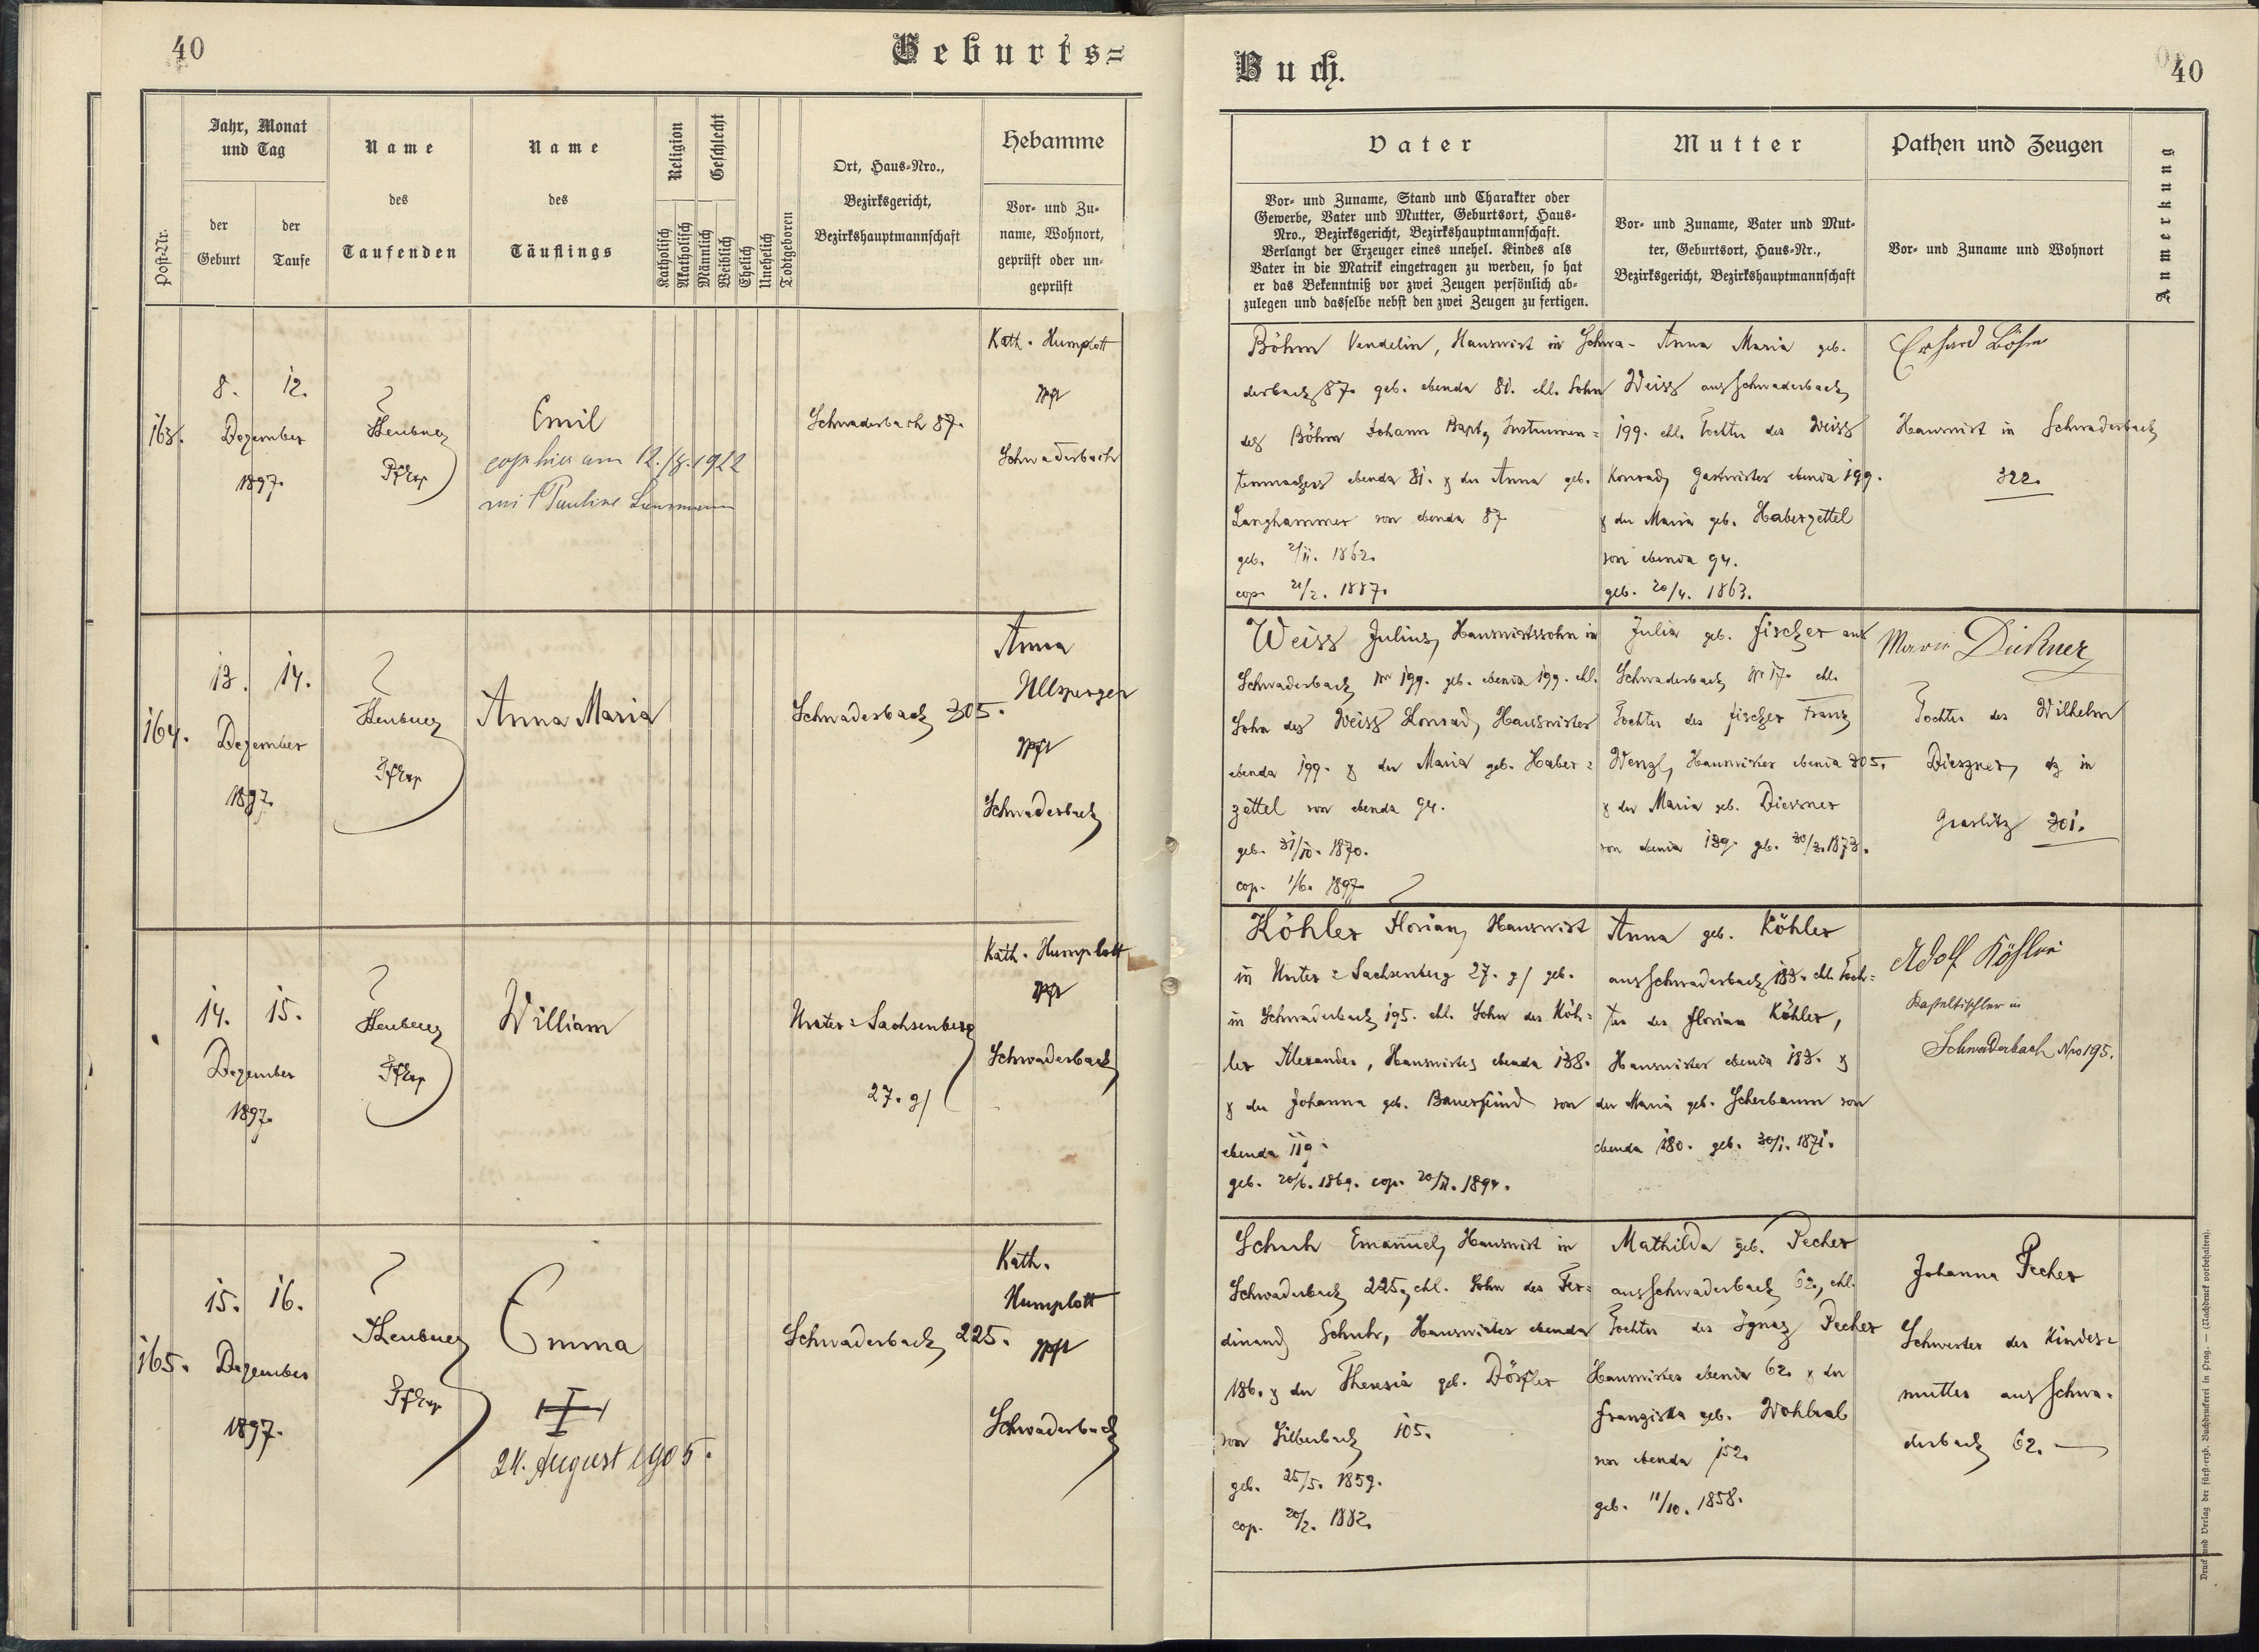 40
Geburts=
Post-Nr.
Jahr, Monat
und Tag
der
Geburt
der
Taufe
Name
des
Taufenden
Name
des
Täuflings
Religion
Katholisch
Akatholisch
Geschlecht
Männlich
Weiblich
Ehelich
Unehelich
Todtgeboren
Ort, Haus-Nro.,
Bezirksgericht,
Bezirkshauptmannschaft
Hebamme
Vor- und Zu-
name, Wohnort,
geprüft oder un-
geprüft
163.
8. 12.
Dezember
1897.
Emil
am 12./8. 1922
mit Pauline
Schwaderbach 87.
Kath. Humplott
Schwaderbach
164.
13. 14.
Dezember
1897.
Anna Maria
Schwaderbach 305.
Anna
Ullsperger
Schwaderbach
14. 15.
Dezember
1897.
William
Unter=Sachsenberg
27. g/
Kath. Humplott
Schwaderbach
165.
15. 16.
Dezember
1897.
Emma
24. August 1905.
Schwaderbach 225.
Kath.
Humplott
Schwaderbach
Buch.
40
Vater
Vor- und Zuname, Stand und Charakter oder
Gewerbe, Vater und Mutter, Geburtsort, Haus-
Nro., Bezirksgericht, Bezirkshauptmannschaft.
Verlangt der Erzeuger eines unehel. Kindes als
Vater in die Matrik eingetragen zu werden, so hat
er das Bekenntniß vor zwei Zeugen persönlich ab-
zulegen und dasselbe nebst den zwei Zeugen zu fertigen.
Mutter
Vor- und Zuname, Vater und Mut-
ter, Geburtsort, Haus-Nr.,
Bezirksgericht, Bezirkshauptmannschaft
Pathen und Zeugen
Vor- und Zuname und Wohnort
Anmerkung
Böhm Vendelin, Hauswirt in Schwa-
derbach 87. geb. ebenda 81. ehl. Sohn
des Böhm Johann Bapt, Instrumen=
tenmachers ebenda 81. & der Anna geb.
Langhammer von ebenda 87
geb. 2/11. 1862.
cop. 21/2. 1887.
Anna Maria geb.
Weiss aus Schwaderbach
199. ehl. Tochter des Weiss
Konrad, Gastwirtes ebenda 199.
& der Maria geb. Haberzettel
von ebenda 94.
geb. 20/4. 1863.
Erhard Böhm
Hauswirt in Schwaderbach
322.
Weiss Julius, Hauswirtssohn in
Schwaderbach Nr 199. geb. ebenda 199. ehl.
Sohn des Weiss Konrad, Hauswirtes
ebenda 199. & der Maria geb. Haber=
zettel von ebenda 94.
geb. 31/10. 1870.
cop. 1/6. 1897
Julia geb. Fischer aus
Schwaderbach Nr 17. ehl.
Tochter des Fischer Franz
Wenzl, Hauswirtes ebenda 305.
& der Maria geb. Diessner
von ebenda 139. geb. 30/3. 1873.
Marie
Tochter des Wilhelm
in
Graslitz 301.
Köhler Florian, Hauswirt
in Unter=Sachsenberg 27. g/ geb.
in Schwaderbach 195. ehl. Sohn des Köh=
ler Alexander, Hauswirtes ebenda 138.
& der Johanna geb. Bauerfeind von
ebenda 119.
geb. 20/6. 1869. cop. 20/11. 1894.
Anna geb. Köhler
aus Schwaderbach 183. ehl. Toch=
ter des Florian Köhler,
Hauswirtes ebenda 183. &
der Maria geb. Scherbaum von
ebenda 180. geb. 30/1. 1871.
Adolf Köhler
in
Schwaderbach Nro 195.
Schuh Emanuel, Hauswirt in
Schwaderbach 225, ehl. Sohn des Fer=
dinand Schuh, Hauswirtes ebenda
186. & der Theresia geb. Dörfler
von Silberbach 105.
geb. 25/5. 1859.
cop. 20/2. 1882.
Mathilda geb. Pecher
aus Schwaderbach 62, ehl.
Tochter des Ignaz Pecher
Hauswirtes ebenda 62. & der
Franziska geb. Wohlrab
von ebenda 152.
geb. 11/10. 1858.
Johanna Pecher
Schwester der Kindes=
mutter aus Schwa-
derbach 62.
Druck und Verlag der fürst-erzb. Buchdruckerei in Prag. — (Nachdruck vorbehalten).